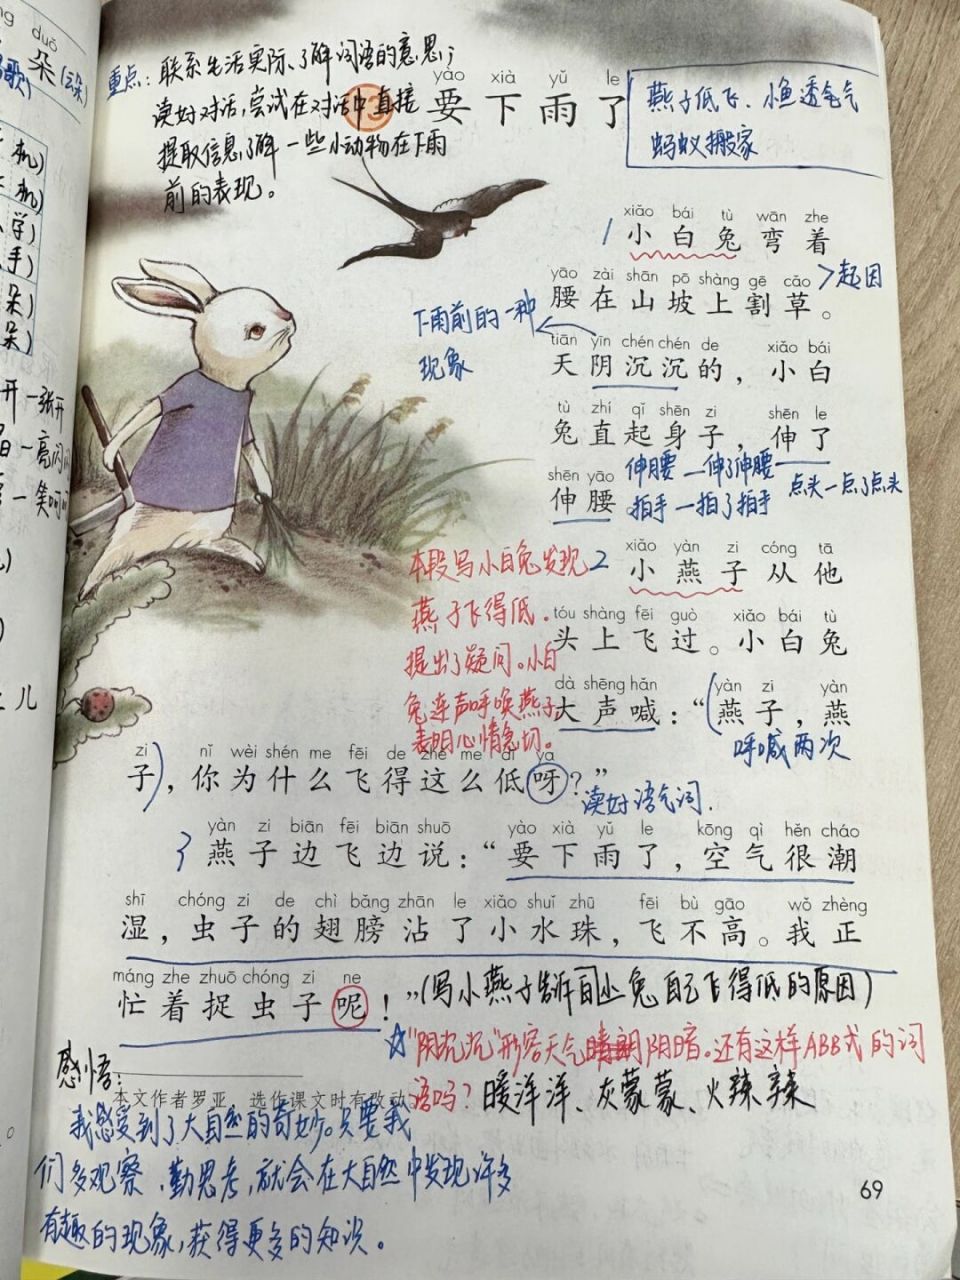 duō
朵(云朵)
重点：联系生活实际、了解词语的意思；
读好对话，尝试在对话中直接
提取信息，了解一些小动物在下雨
前的表现。
yào xià yǔ le
要下雨了
燕子低飞、小鱼透气
蚂蚁搬家
xiǎo bái tù wān zhe
1 小白兔弯着
yāo zài shān pō shàng gē cǎo
腰在山坡上割草。
>起因
下雨前的一种
现象
tiān yīn chén chén de xiǎo bái
天阴沉沉的，小白
tù zhí qǐ shēn zi shēn le
兔直起身子，伸了
shēn yāo
伸腰。
伸腰—伸了伸腰
拍手—拍了拍手 点头—点了点头
xiǎo yàn zi cóng tā
2 小燕子从他
tóu shàng fēi guò xiǎo bái tù
头上飞过。小白兔
dà shēng hǎn yàn zi yàn
大声喊：“燕子，燕
呼喊两次
本段写小白兔发现
燕子飞得低，
提出了疑问。小白
兔连声呼唤燕子
表明心情急切。
zi nǐ wèi shén me fēi de zhè me dī ya
子，你为什么飞得这么低呀？”
读好语气词.
yàn zi biān fēi biān shuō yào xià yǔ le kōng qì hěn cháo
3 燕子边飞边说：“要下雨了，空气很潮
shī chóng zi de chì bǎng zhān le xiǎo shuǐ zhū fēi bù gāo wǒ zhèng
湿，虫子的翅膀沾了小水珠，飞不高。我正
máng zhe zhuō chóng zi ne
忙着捉虫子呢！”
(写小燕子告诉白兔自己飞得低的原因)
☆“阴沉沉”形容天气阴暗。还有这样ABB式的词
语吗？暖洋洋、灰蒙蒙、火辣辣
感悟：
本文作者罗亚，选作课文时有改动。
我感受到了大自然的奇妙。只要我
们多观察，勤思考，就会在大自然中发现许多
有趣的现象，获得更多的知识。
69
机)
机)
学)
手)
朵)
朵)
开—张开
—亮闪闪
—笑呵呵
儿